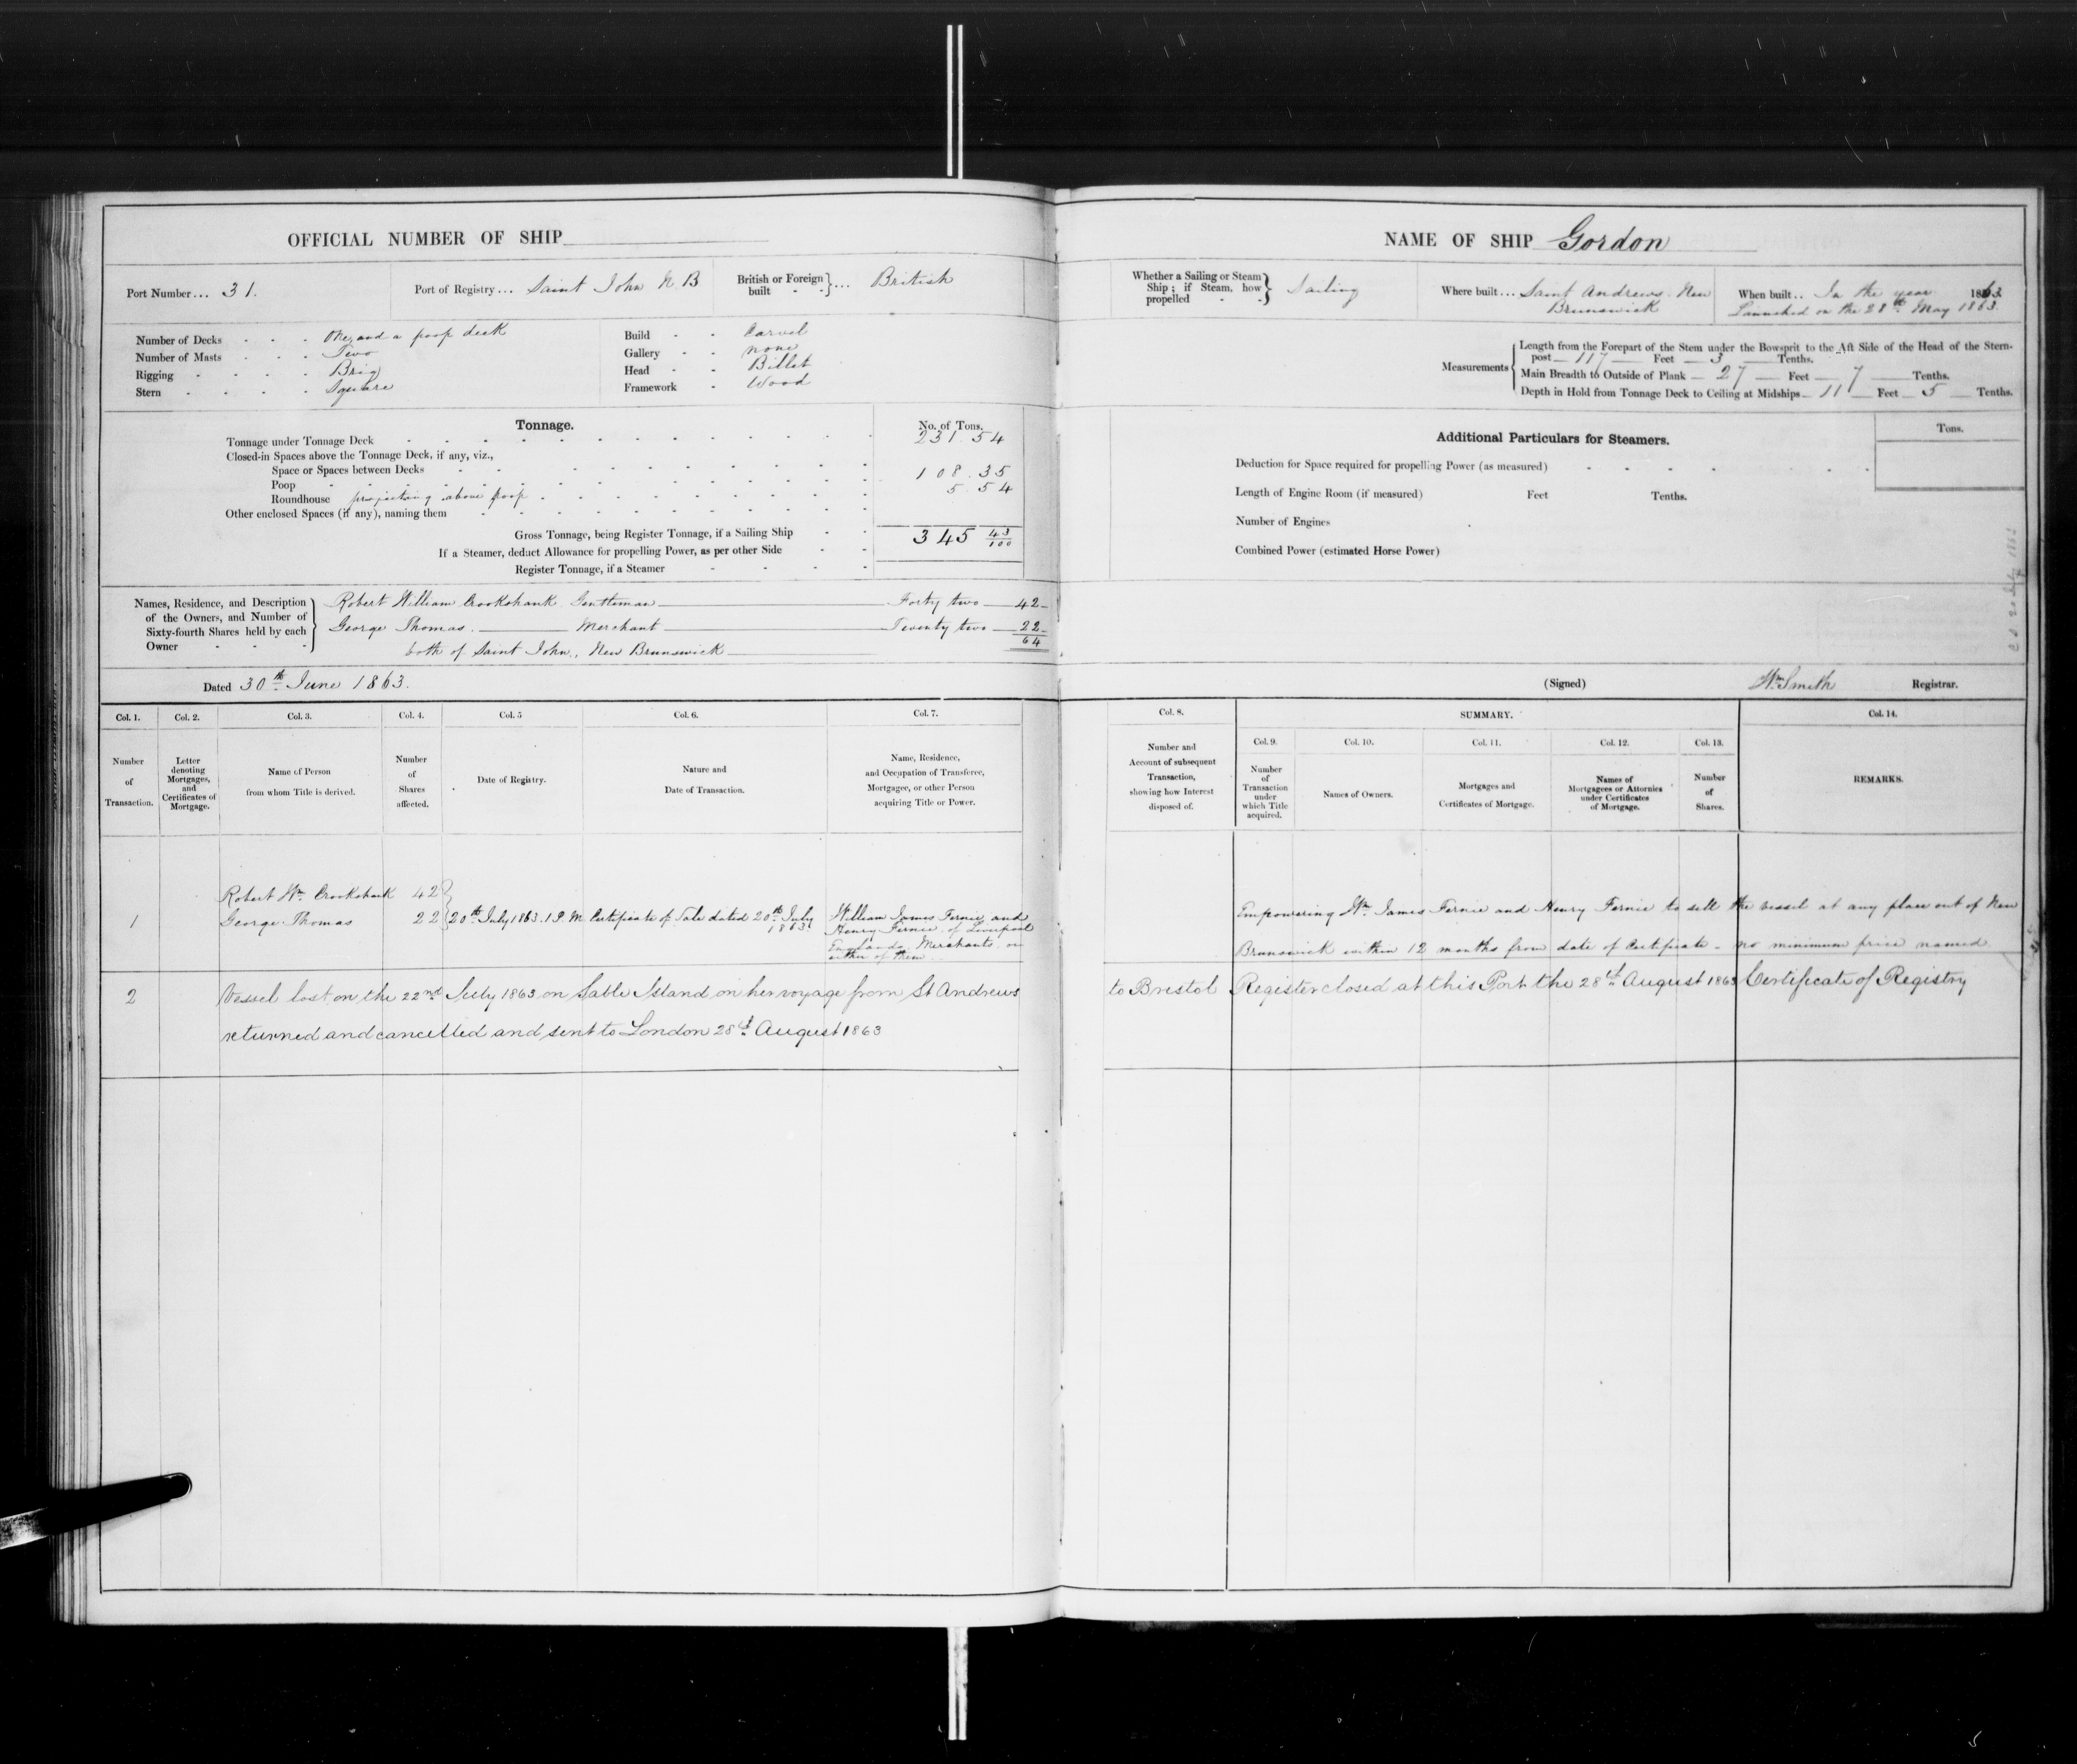 OFFICIAL NUMBER OF SHIP
Port Number... 31.
Port of Registry... Saint John N.B
British or Foreign built } ... British
Number of Decks - - - One and a poop deck
Number of Masts - - - Two
Rigging - - - - Brig
Stern - - - - Square
Build - - Carvel
Gallery - - none
Head - - Billet
Framework - Wood
Tonnage.
No. of Tons.
Tonnage under Tonnage Deck 231.54
Closed-in Spaces above the Tonnage Deck, if any, viz.,
Space or Spaces between Decks
Poop 108.35
Roundhouse projecting above poop 5.54
Other enclosed Spaces (if any), naming them
Gross Tonnage, being Register Tonnage, if a Sailing Ship 345 43/100
If a Steamer, deduct Allowance for propelling Power, as per other Side
Register Tonnage, if a Steamer
Names, Residence, and Description of the Owners, and Number of Sixty-fourth Shares held by each Owner
Robert William Crookshank Gentleman Forty two 42
George Thomas. Merchant Twenty two 22
64
both of Saint John, New Brunswick
Dated 30th June 1863.
NAME OF SHIP Gordon
Whether a Sailing or Steam Ship; if Steam, how propelled } Sailing
Where built... Saint Andrews New Brunswick
When built.. In the year 1863
Launched on the 28th May 1863
Measurements
Length from the Forepart of the Stem under the Bowsprit to the Aft Side of the Head of the Stern-
post 117 Feet 3 Tenths.
Main Breadth to Outside of Plank 27 Feet 7 Tenths.
Depth in Hold from Tonnage Deck to Ceiling at Midships 11 Feet 5 Tenths.
Additional Particulars for Steamers.
Tons.
Deduction for Space required for propelling Power (as measured)
Length of Engine Room (if measured) Feet Tenths.
Number of Engines
Combined Power (estimated Horse Power)
(Signed) Wm Smith Registrar.
Col. 1. Col. 2. Col. 3. Col. 4. Col. 5 Col. 6. Col. 7.
Number of Transaction.
Letter denoting Mortgages, and Certificates of Mortgage.
Name of Person from whom Title is derived.
Number of Shares affected.
Date of Registry.
Nature and Date of Transaction.
Name, Residence, and Occupation of Transferee, Mortgagee, or other Person acquiring Title or Power.
Col. 8. SUMMARY. Col. 14.
Col. 9. Col. 10. Col. 11. Col. 12. Col. 13.
Number and Account of subsequent Transaction, showing how Interest disposed of.
Number of Transaction under which Title acquired.
Names of Owners.
Mortgages and Certificates of Mortgage.
Names of Mortgagees or Attornies under Certificates of Mortgage.
Number of Shares.
REMARKS.
Robert Wm Crookshank 42
1 George Thomas 22 20th July 1863. 1 P M Certificate of Sale dated 20th July 1863
William James Fernie and
Henry Fernie of Liverpool
England Merchants or
either of them
Empowering Wm James Fernie and Henry Fernie to sell the vessel at any place out of New
Brunswick within 12 months from date of Certificate - no minimum price named
2 Vessel lost on the 22nd July 1863 on Sable Island on her voyage from St Andrews
to Bristol Register closed at this Port the 28th August 1863 Certificate of Registry
returned and cancelled and sent to London 28th August 1863